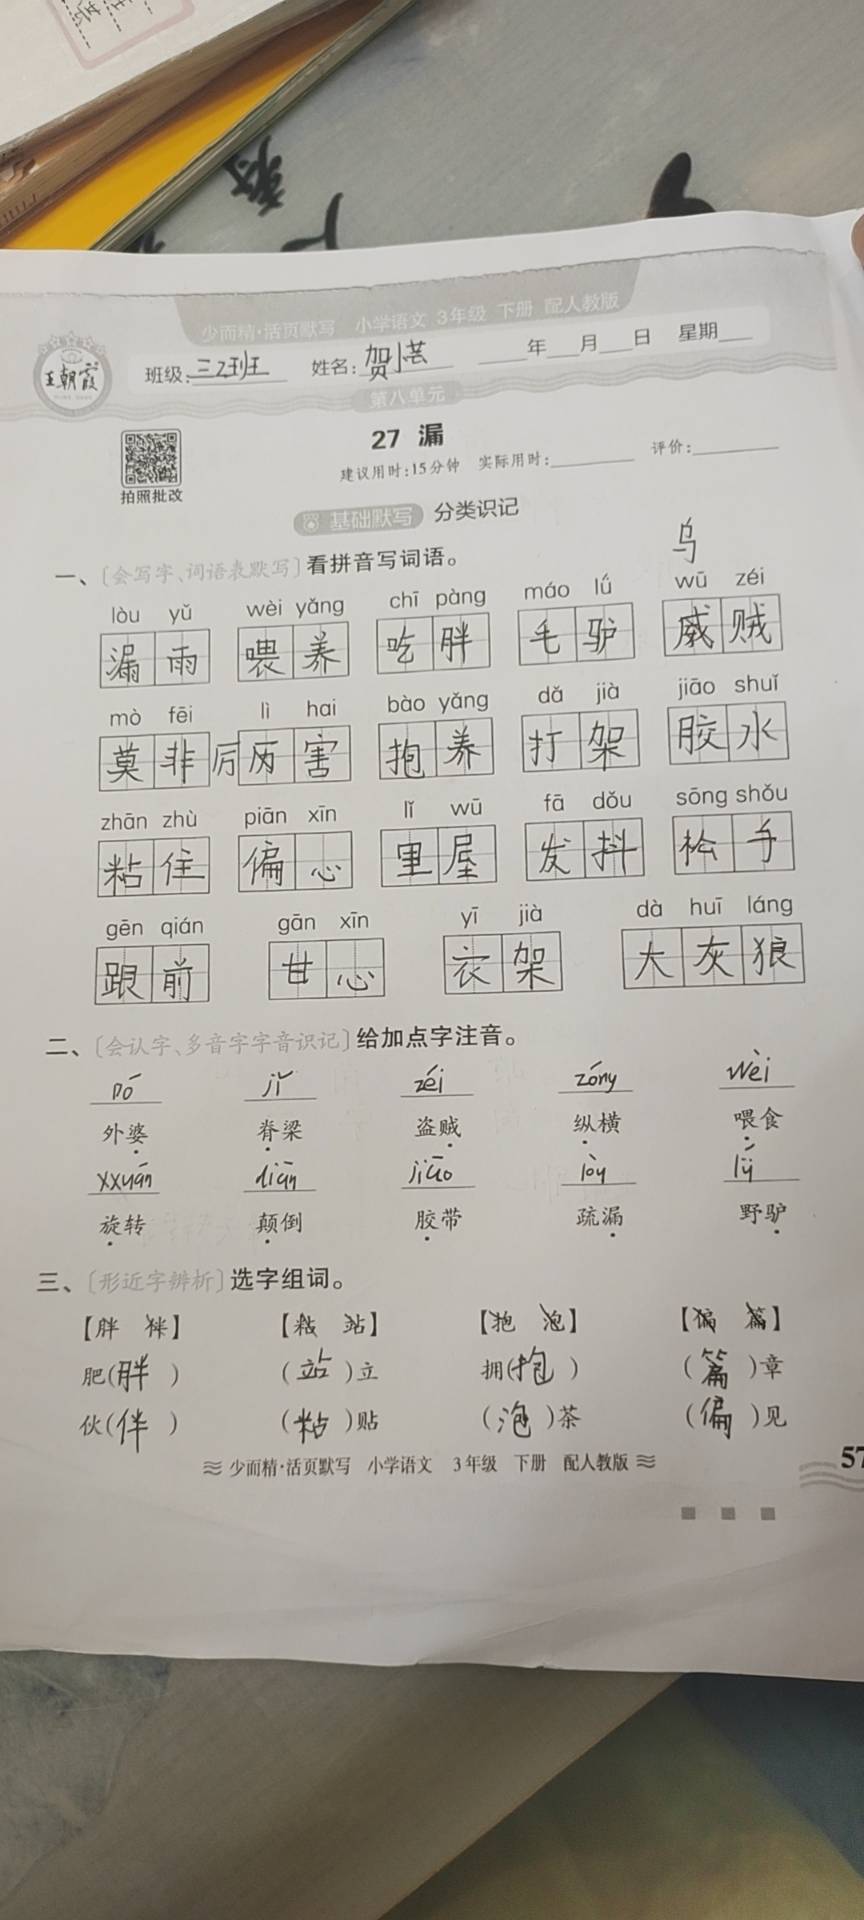 少而精·活页默写 小学语文 3年级 下册 配人教版
王朝霞
班级: 三2班 姓名: 年 月 日 星期
第八单元
27 漏
建议用时:15分钟 实际用时: 评价:
拍照批改
基础默写 分类识记
乌
一、〔会写字、词语表默写〕看拼音写词语。
lòu yǔ wèi yǎng chī pàng máo lǘ wū zéi
漏雨 喂养 吃胖 毛驴 威贼
mò fēi lì hai bào yǎng dǎ jià jiāo shuǐ
莫非 厉害 抱养 打架 胶水
zhān zhù piān xīn lǐ wū fā dǒu sōng shǒu
粘住 偏心 里屋 发抖 松手
gēn qián gān xīn yī jià dà huī láng
跟前 甘心 衣架 大灰狼
二、〔会认字、多音字字音识记〕给加点字注音。
pó jǐ zéi zóng wèi
外婆 脊梁 盗贼 纵横 喂食
xxuán diān jiāo lòy lǘ
旋转 颠倒 胶带 疏漏 野驴
三、〔形近字辨析〕选字组词。
【胖 伴】 【粘 站】 【抱 泡】 【偏 篇】
肥(胖) (站)立 拥(抱) (篇)章
伙(伴) (粘)贴 (泡)茶 (偏)见
少而精·活页默写 小学语文 3年级 下册 配人教版
57